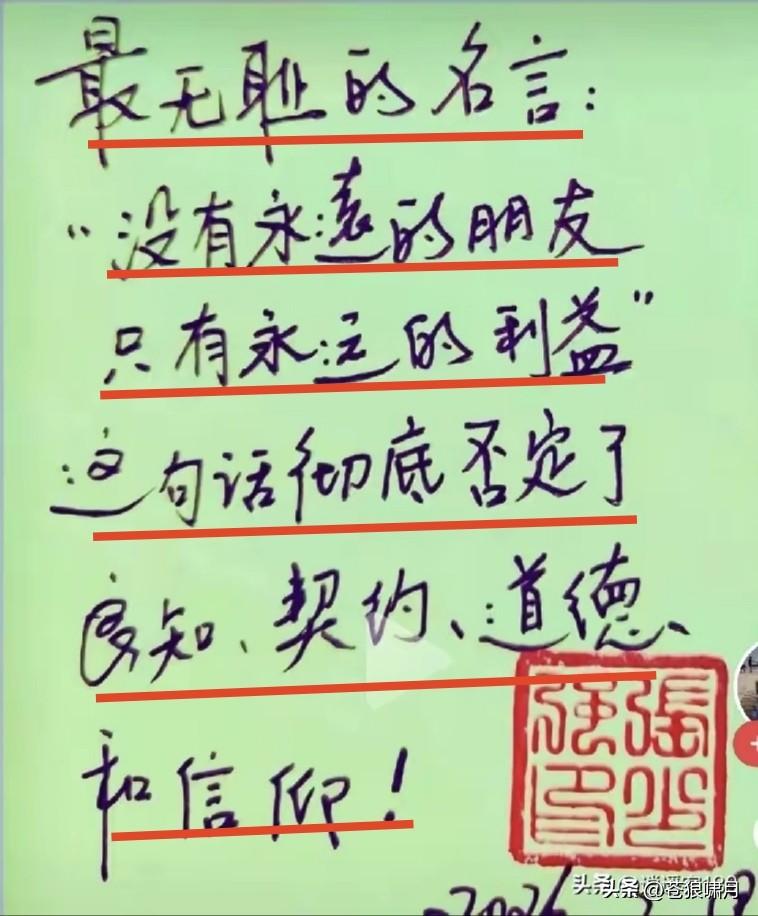 最无耻的名言：
“没有永遠的朋友
只有永远的利益”
这句话彻底否定了
良知、契约、道德、
和信仰！
头条 @苍狼啸月